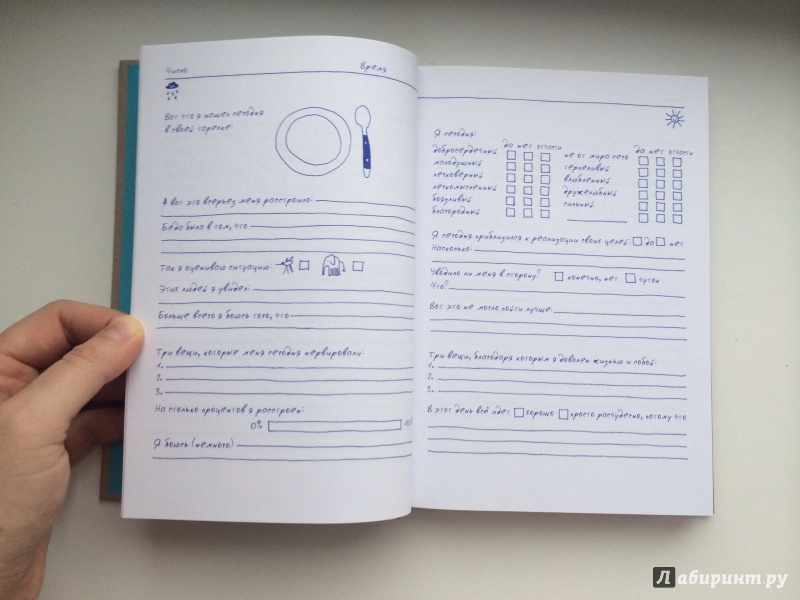 Число Время
Вот что я нашел сегодня
в своей тарелке:
А вот это всерьез меня расстроило:
Беда была в том, что
Так я оцениваю ситуацию:
Этих людей я увидел:
Больше всего я боюсь того, что
Три вещи, которые меня сегодня нервировали:
1.
2.
3.
На сколько процентов я расстроен:
0%
Я боюсь (немного)
Я сегодня:
да нет отчасти
добросердечный
малодушный
легковерный
легкомысленный
боязливый
благородный
да нет отчасти
не от мира сего
терпеливый
влюбленный
дружелюбный
сильный
Я сегодня приблизился к реализации своих целей: да нет
Насколько:
Уводило ли меня в сторону? конечно, нет чуток
Что?
Вот это не могло пойти лучше:
Три вещи, благодаря которым я доволен жизнью и собой:
1.
2.
3.
В этот день всё идет хорошо просто расчудесно, потому что
Лабиринт.ру